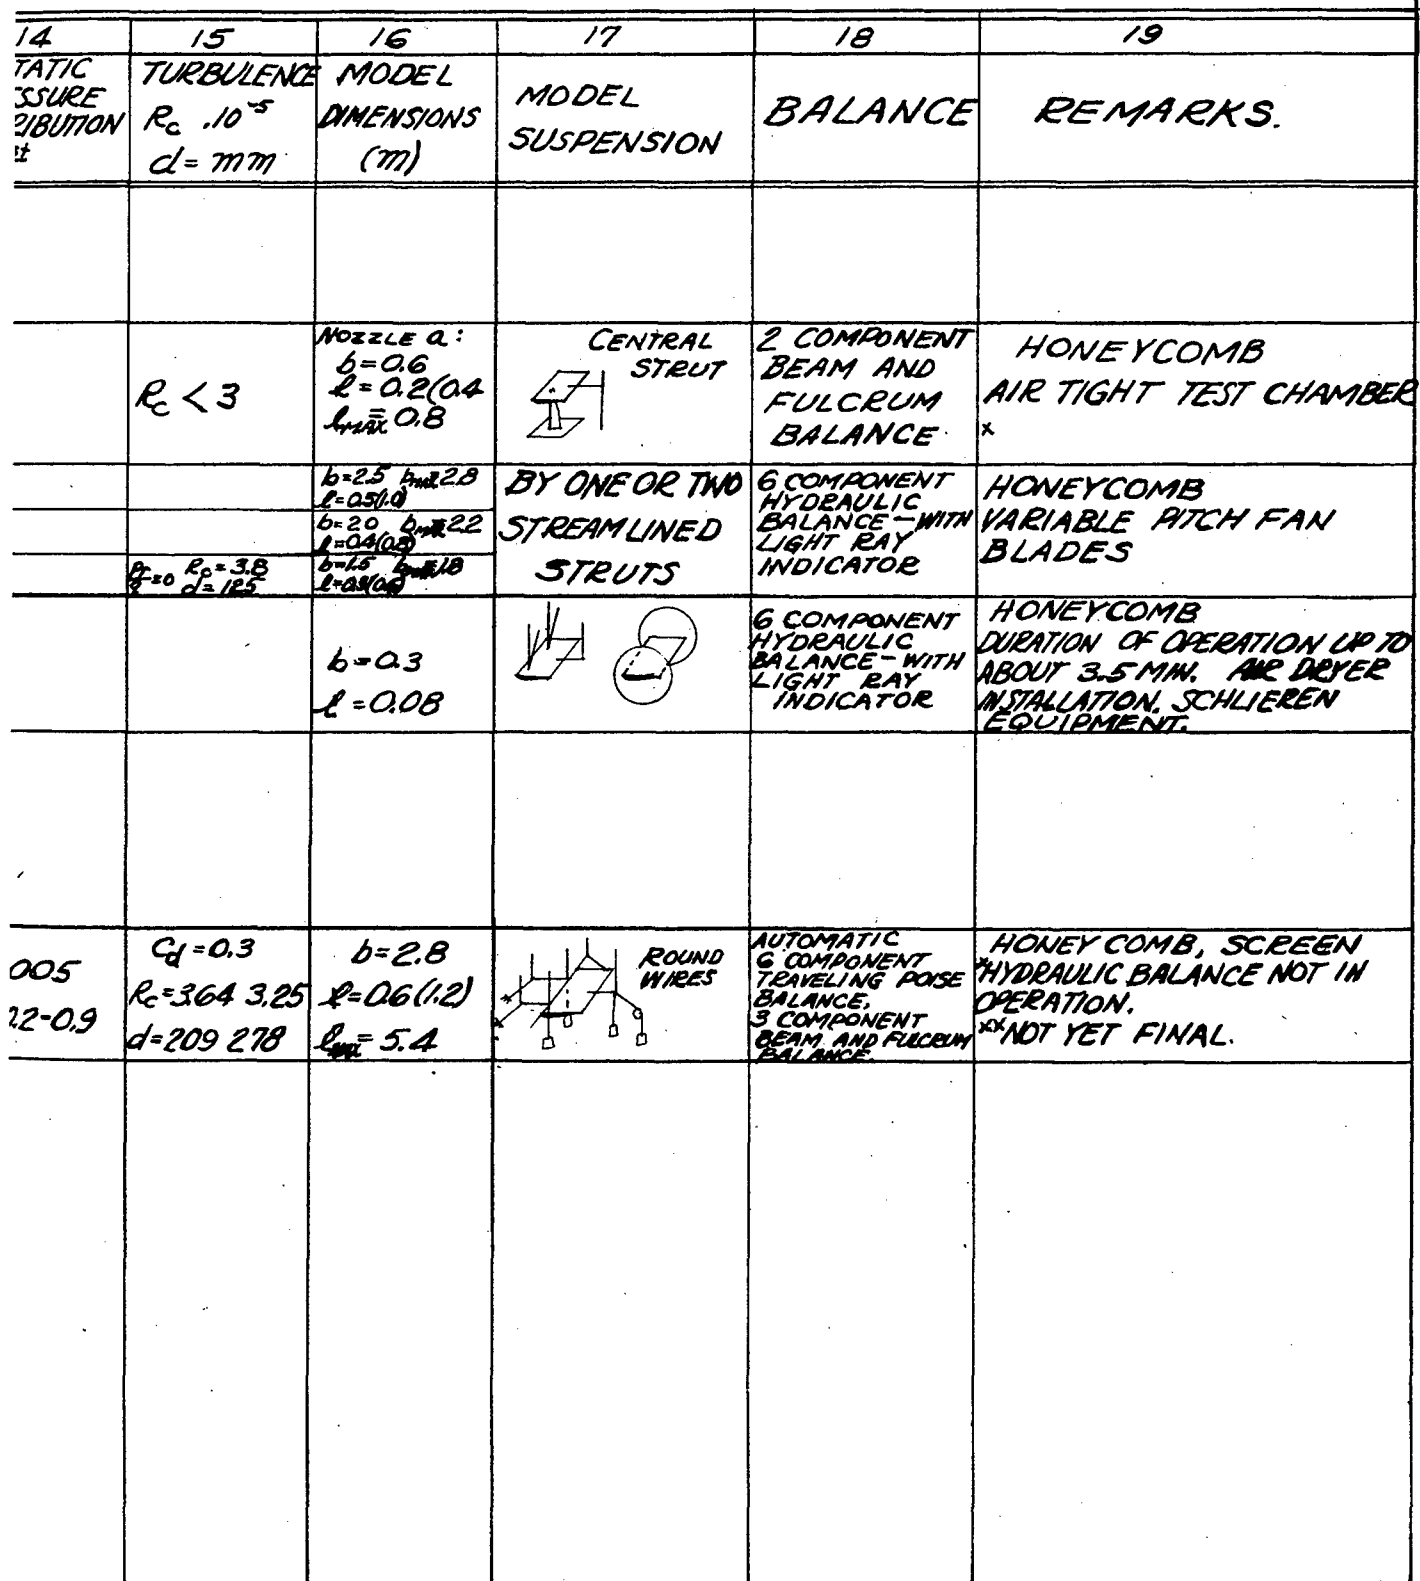 14 15 16 17 18 19
TATIC
SSURE
RIBUTION
TURBULENCE
Rc .10⁻⁵
d = mm
MODEL
DIMENSIONS
(m)
MODEL
SUSPENSION
BALANCE
REMARKS.
Rc < 3
NOZZLE a:
b = 0.6
l = 0.2(0.4
lmax = 0.8
CENTRAL
STRUT
2 COMPONENT
BEAM AND
FULCRUM
BALANCE
HONEYCOMB
AIR TIGHT TEST CHAMBER
x
b=2.5 bmax=2.8
l=0.5(1.0)
b=2.0 bmax=2.2
l=0.4(0.8)
=0 Rc=3.8
d=125
b=1.5 bmax=1.8
BY ONE OR TWO
STREAMLINED
STRUTS
6 COMPONENT
HYDRAULIC
BALANCE - WITH
LIGHT RAY
INDICATOR
HONEYCOMB
VARIABLE PITCH FAN
BLADES
b = 0.3
l = 0.08
6 COMPONENT
HYDRAULIC
BALANCE - WITH
LIGHT RAY
INDICATOR
HONEYCOMB
DURATION OF OPERATION UP TO
ABOUT 3.5 MIN. AIR DRYER
INSTALLATION. SCHLIEREN
EQUIPMENT.
005
2.2-0.9
Cd = 0.3
Rc = 3.64 3.25
d = 209 278
b = 2.8
l = 0.6 (1.2)
lmax = 5.4
ROUND
WIRES
AUTOMATIC
6 COMPONENT
TRAVELING POISE
BALANCE,
3 COMPONENT
BEAM AND FULCRUM
BALANCE.
HONEY COMB, SCREEN
xHYDRAULIC BALANCE NOT IN
OPERATION.
xxNOT YET FINAL.